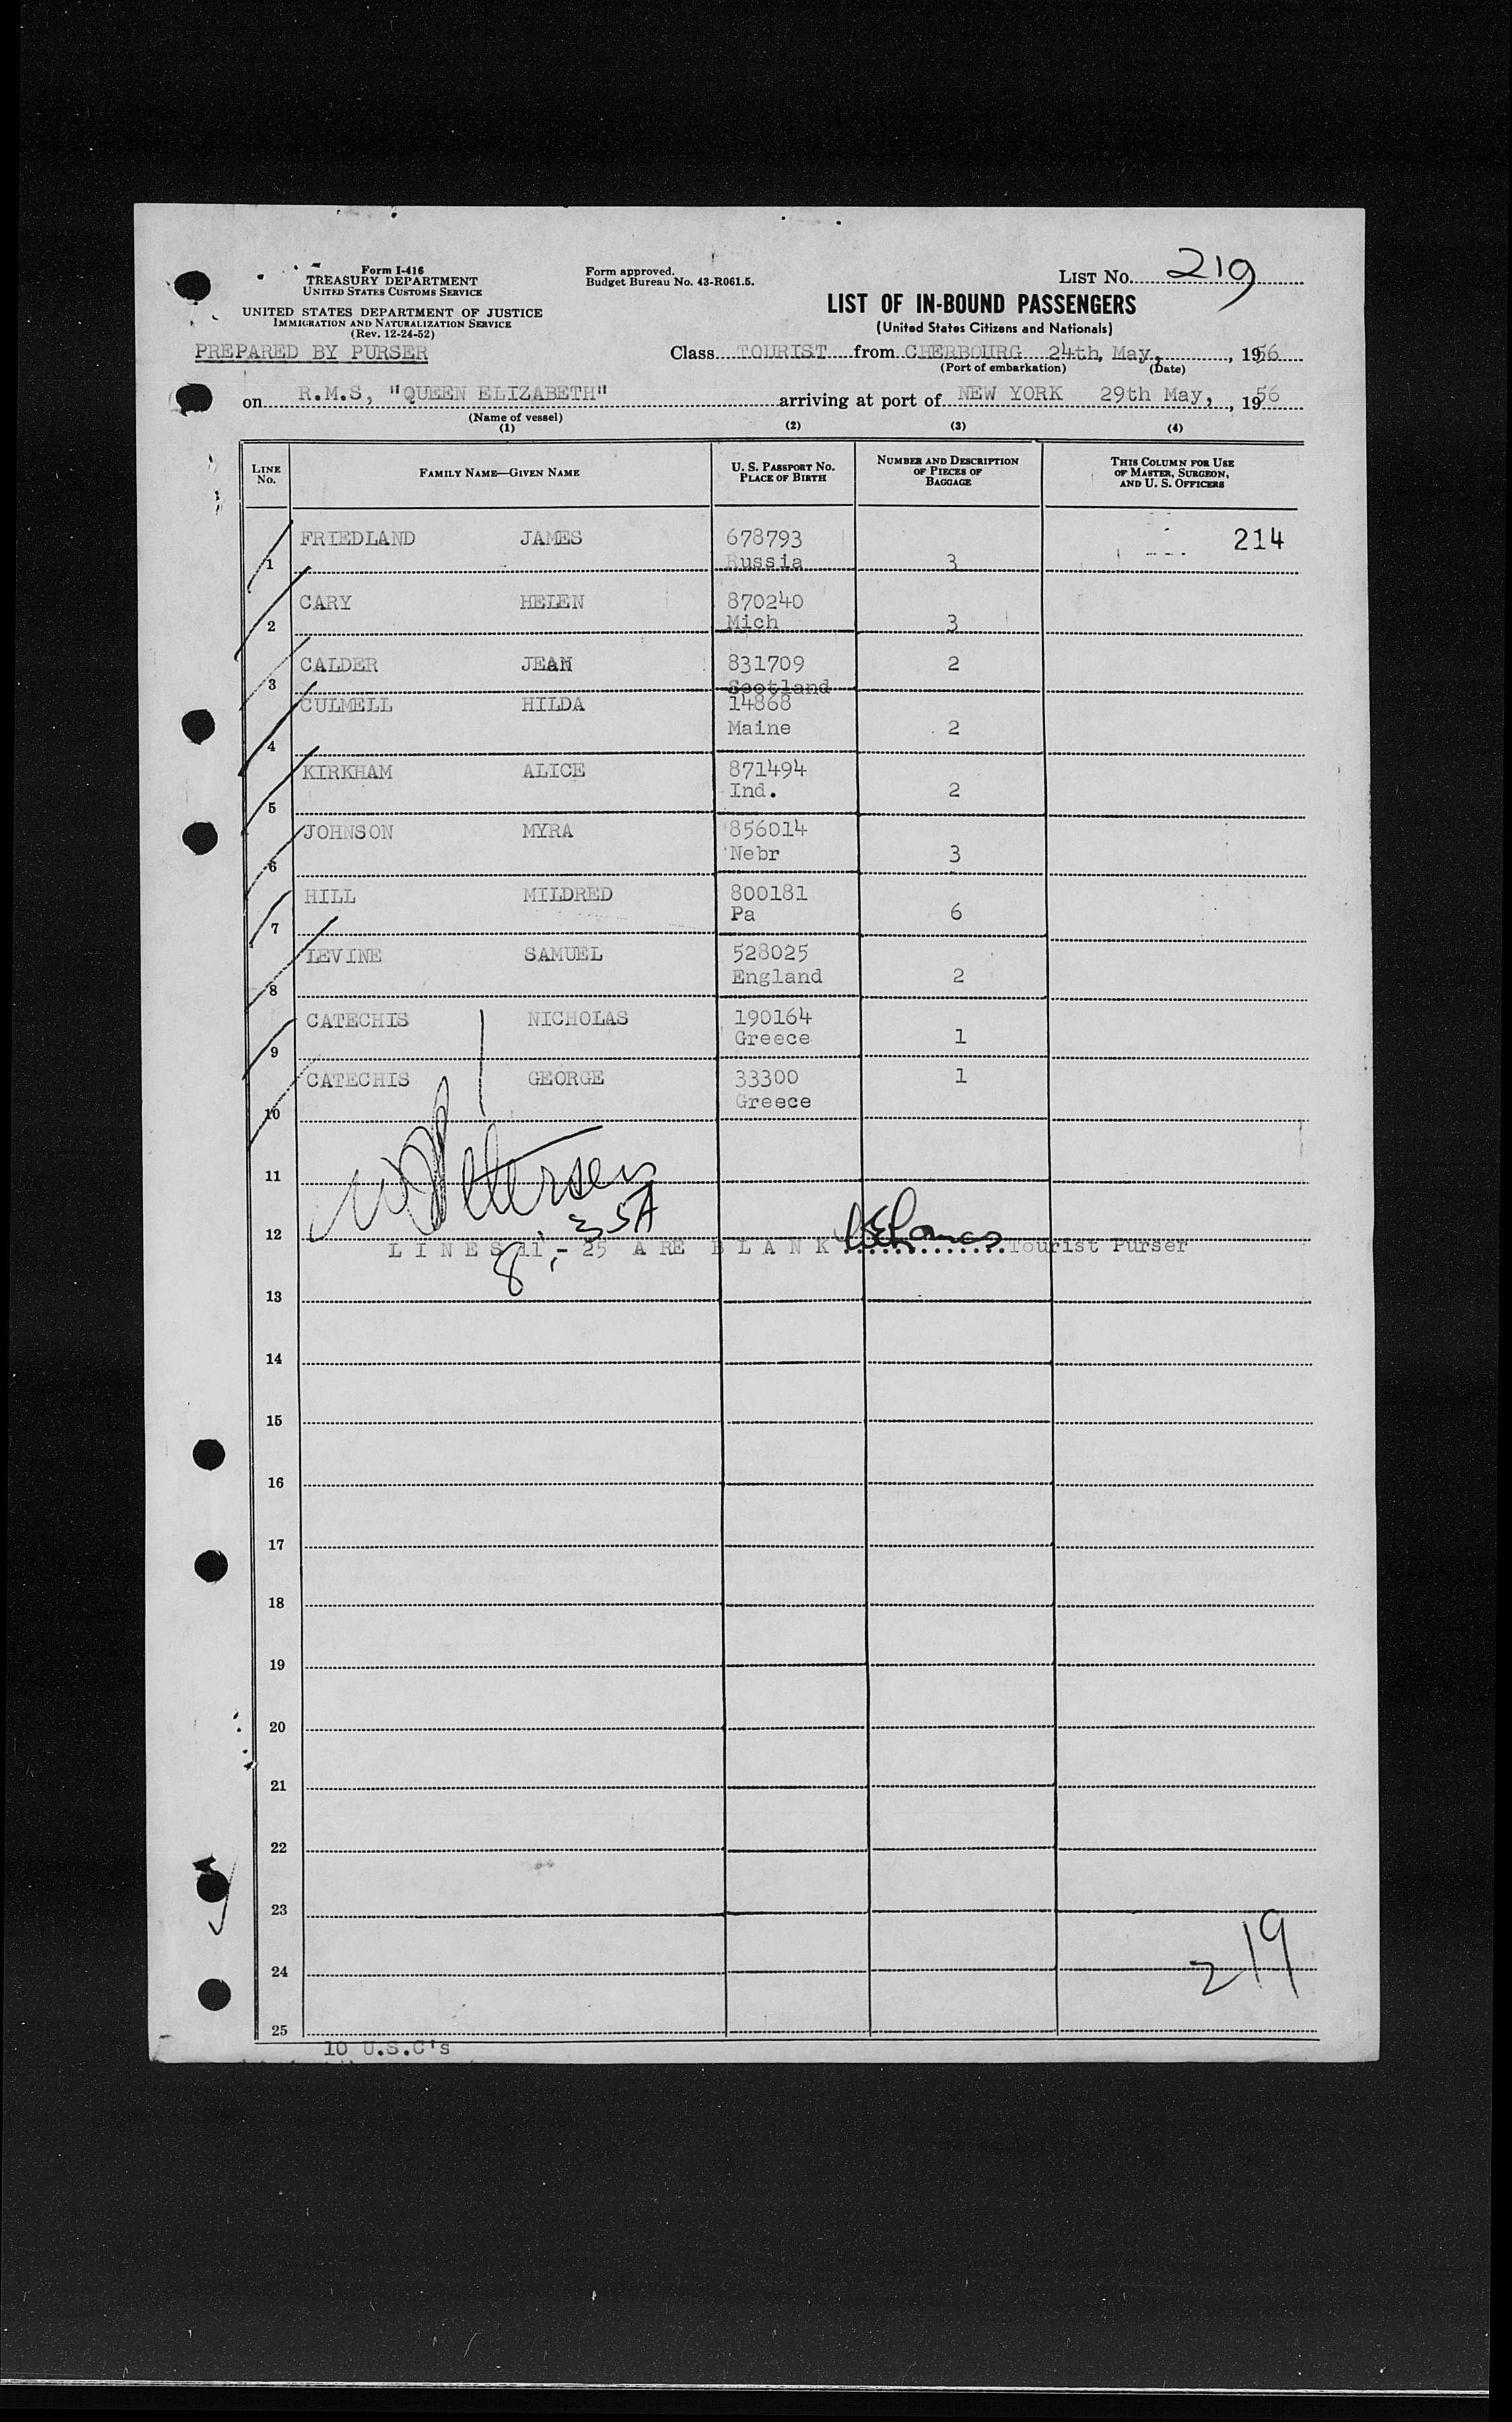 Form I-416
TREASURY DEPARTMENT
UNITED STATES CUSTOMS SERVICE
UNITED STATES DEPARTMENT OF JUSTICE
IMMIGRATION AND NATURALIZATION SERVICE
(Rev. 12-24-52)
PREPARED BY PURSER
Form approved.
Budget Bureau No. 43-R061.5.
LIST No. 219
LIST OF IN-BOUND PASSENGERS
(United States Citizens and Nationals)
Class TOURIST from CHERBOURG 24th, May, , 1956
(Port of embarkation) (Date)
on R.M.S, "QUEEN ELIZABETH" arriving at port of NEW YORK 29th May, , 1956
(Name of vessel)
(1) (2) (3) (4)
LINE No. FAMILY NAME—GIVEN NAME U. S. PASSPORT No. PLACE OF BIRTH NUMBER AND DESCRIPTION OF PIECES OF BAGGAGE THIS COLUMN FOR USE OF MASTER, SURGEON, AND U. S. OFFICERS
FRIEDLAND JAMES 678793 214
1 Russia 3
CARY HELEN 870240
2 Mich 3
CALDER JEAN 831709 2
3 Scotland
CULMELL HILDA 14868
4 Maine 2
KIRKHAM ALICE 871494
5 Ind. 2
JOHNSON MYRA 856014
6 Nebr 3
HILL MILDRED 800181
7 Pa 6
LEVINE SAMUEL 528025
8 England 2
CATECHIS NICHOLAS 190164
9 Greece 1
CATECHIS GEORGE 33300 1
10 Greece
11
12
8; 35A
L I N E S 11 - 25 A RE B L A N K Tourist Purser
13
14
15
16
17
18
19
20
21
22
23
24
219
25
10 U.S.C's